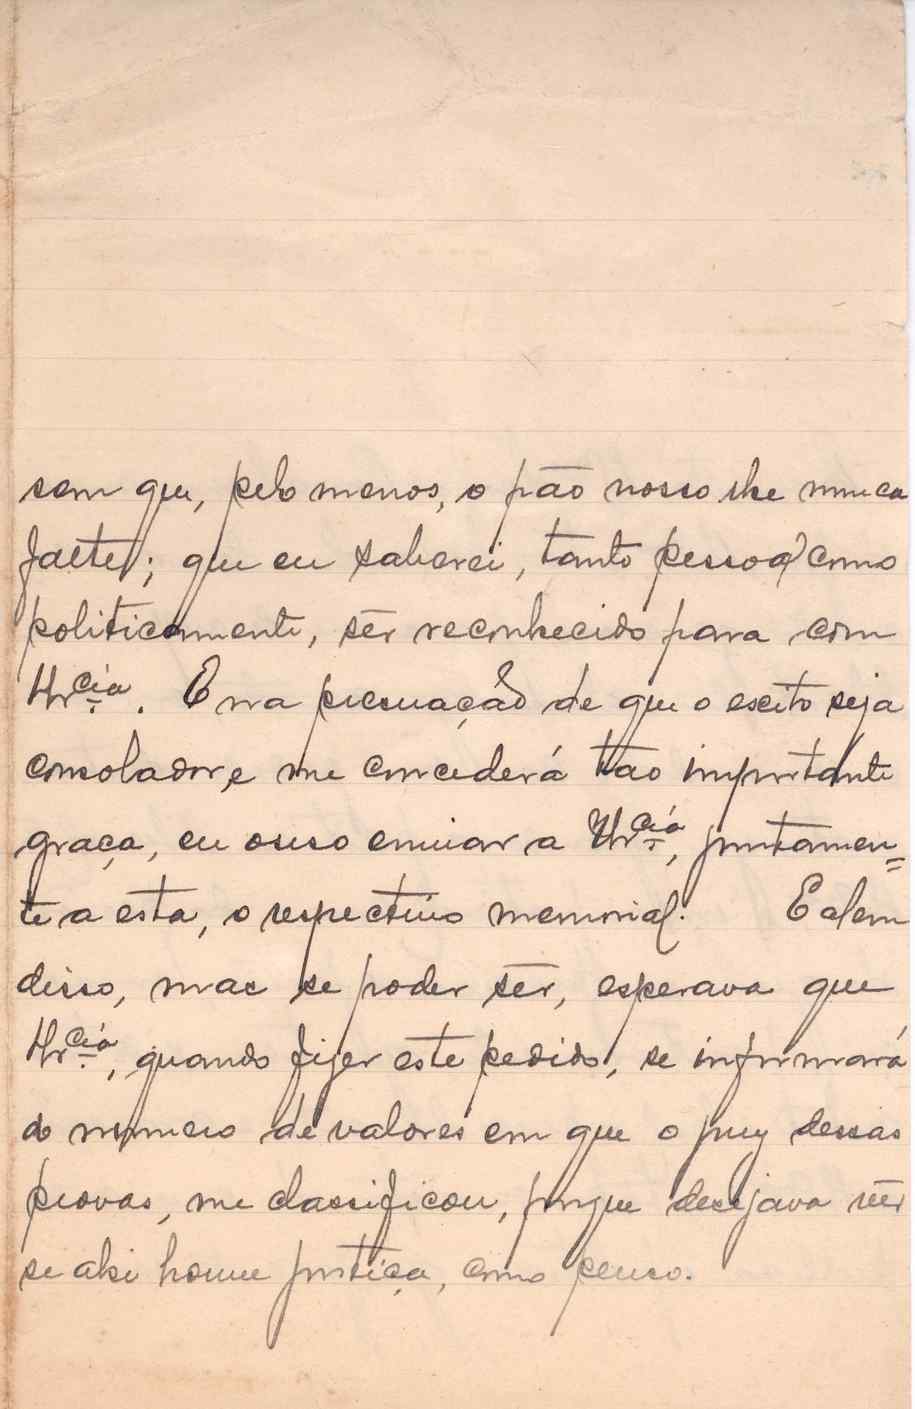 sem que, pelo menos, o pão nosso lhe nunca
falte; que eu saberei, tanto pessoal como
politicamente, sêr reconhecido para com
V.Ex.cia. E na persuação de que o exito seja
consolador, e me concederá tão importante
graça, eu ouso enviar a V.Ex.cia, juntamen=
te a esta, o respectivo memorial. E alem
disso, mas se poder sêr, esperava que
V.Ex.cia, quando fizer este pedido, se informará
do numero de valores em que o jury dessas
provas, me classificou, porque desejava vêr
se ahi houve justiça, como penso.